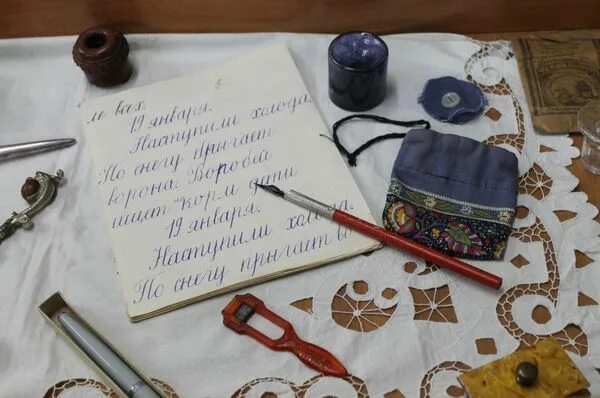 5
ло вах.
19 января.
Наступили холода
По снегу прыгает
ворона. Воробей
ищет корм дети
19 января.
Наступили холода.
По снегу прыгает в